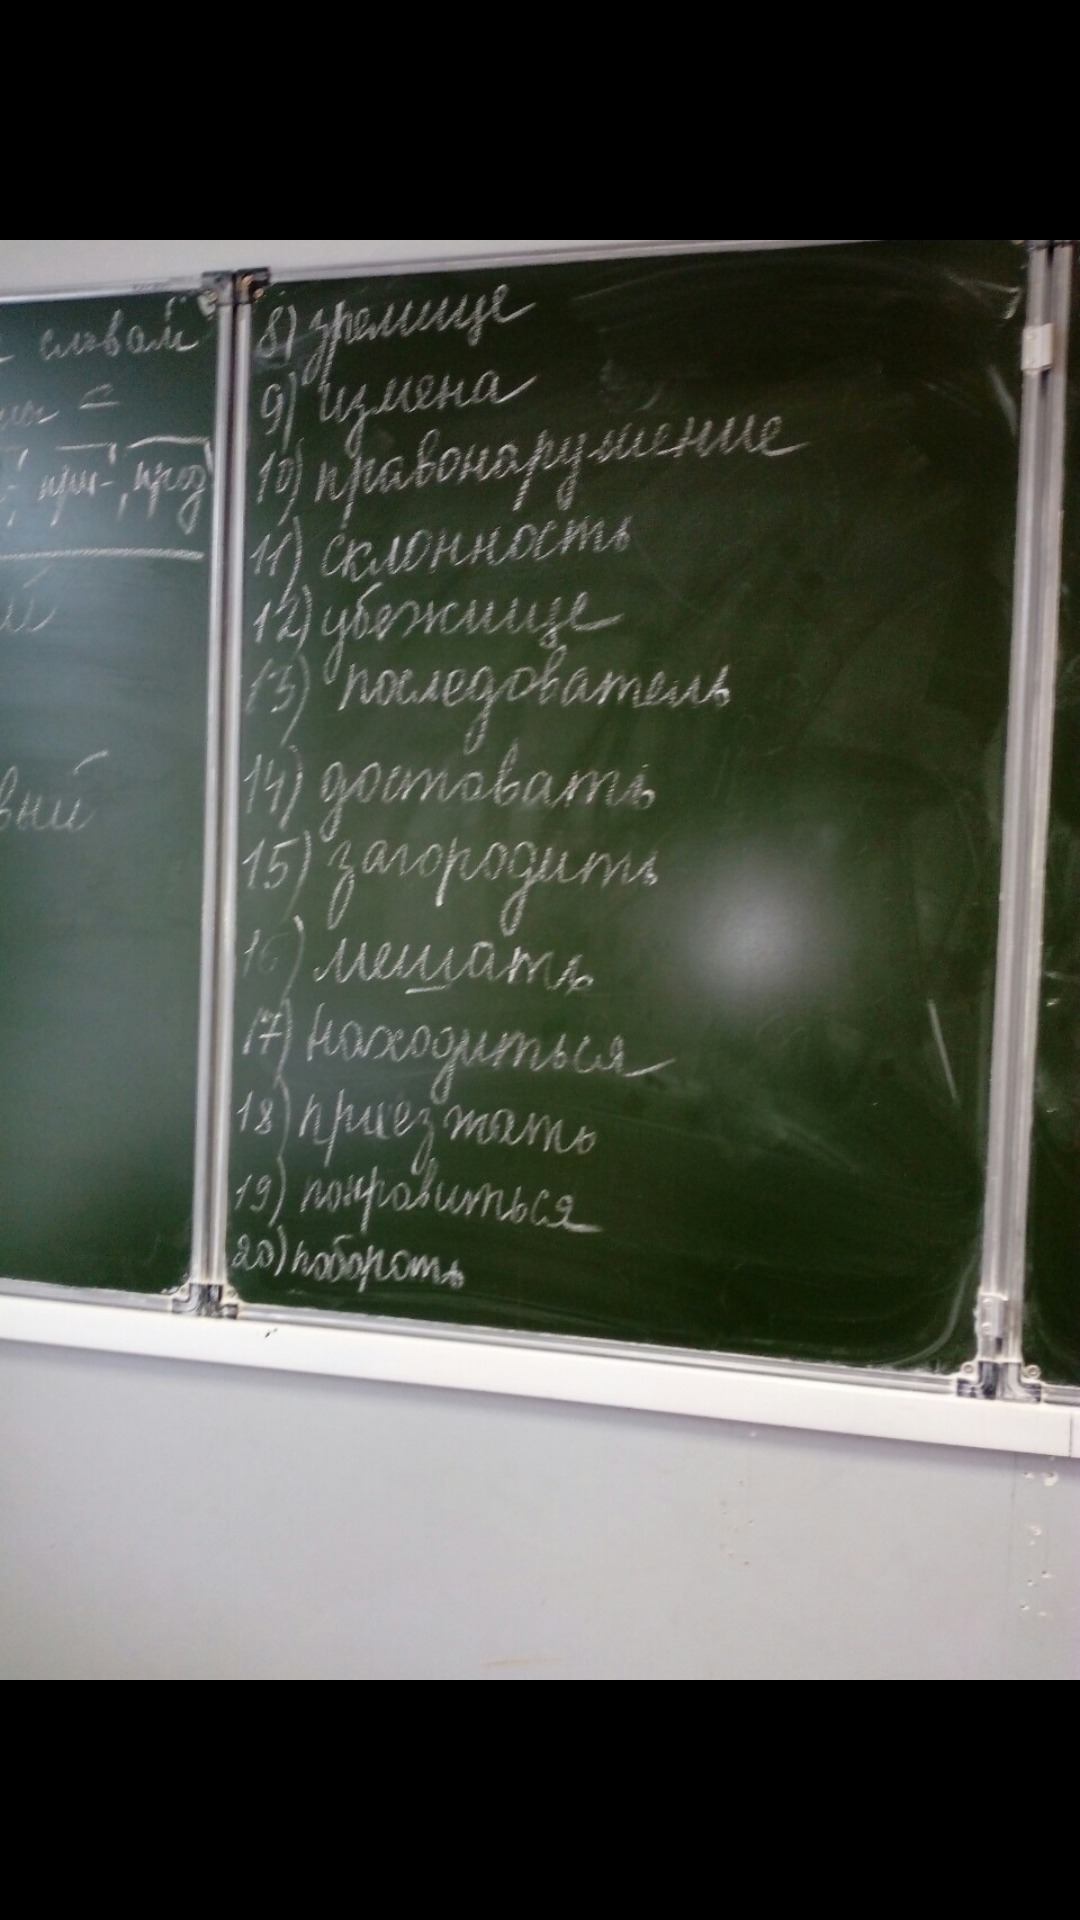 словам
при-, пред
8) зрелище
9) измена
10) правонарушение
11) склонность
12) убежище
13) последователь
14) доставать
15) загородить
16) мешать
17) находиться
18) приезжать
19) понравиться
20) побороть